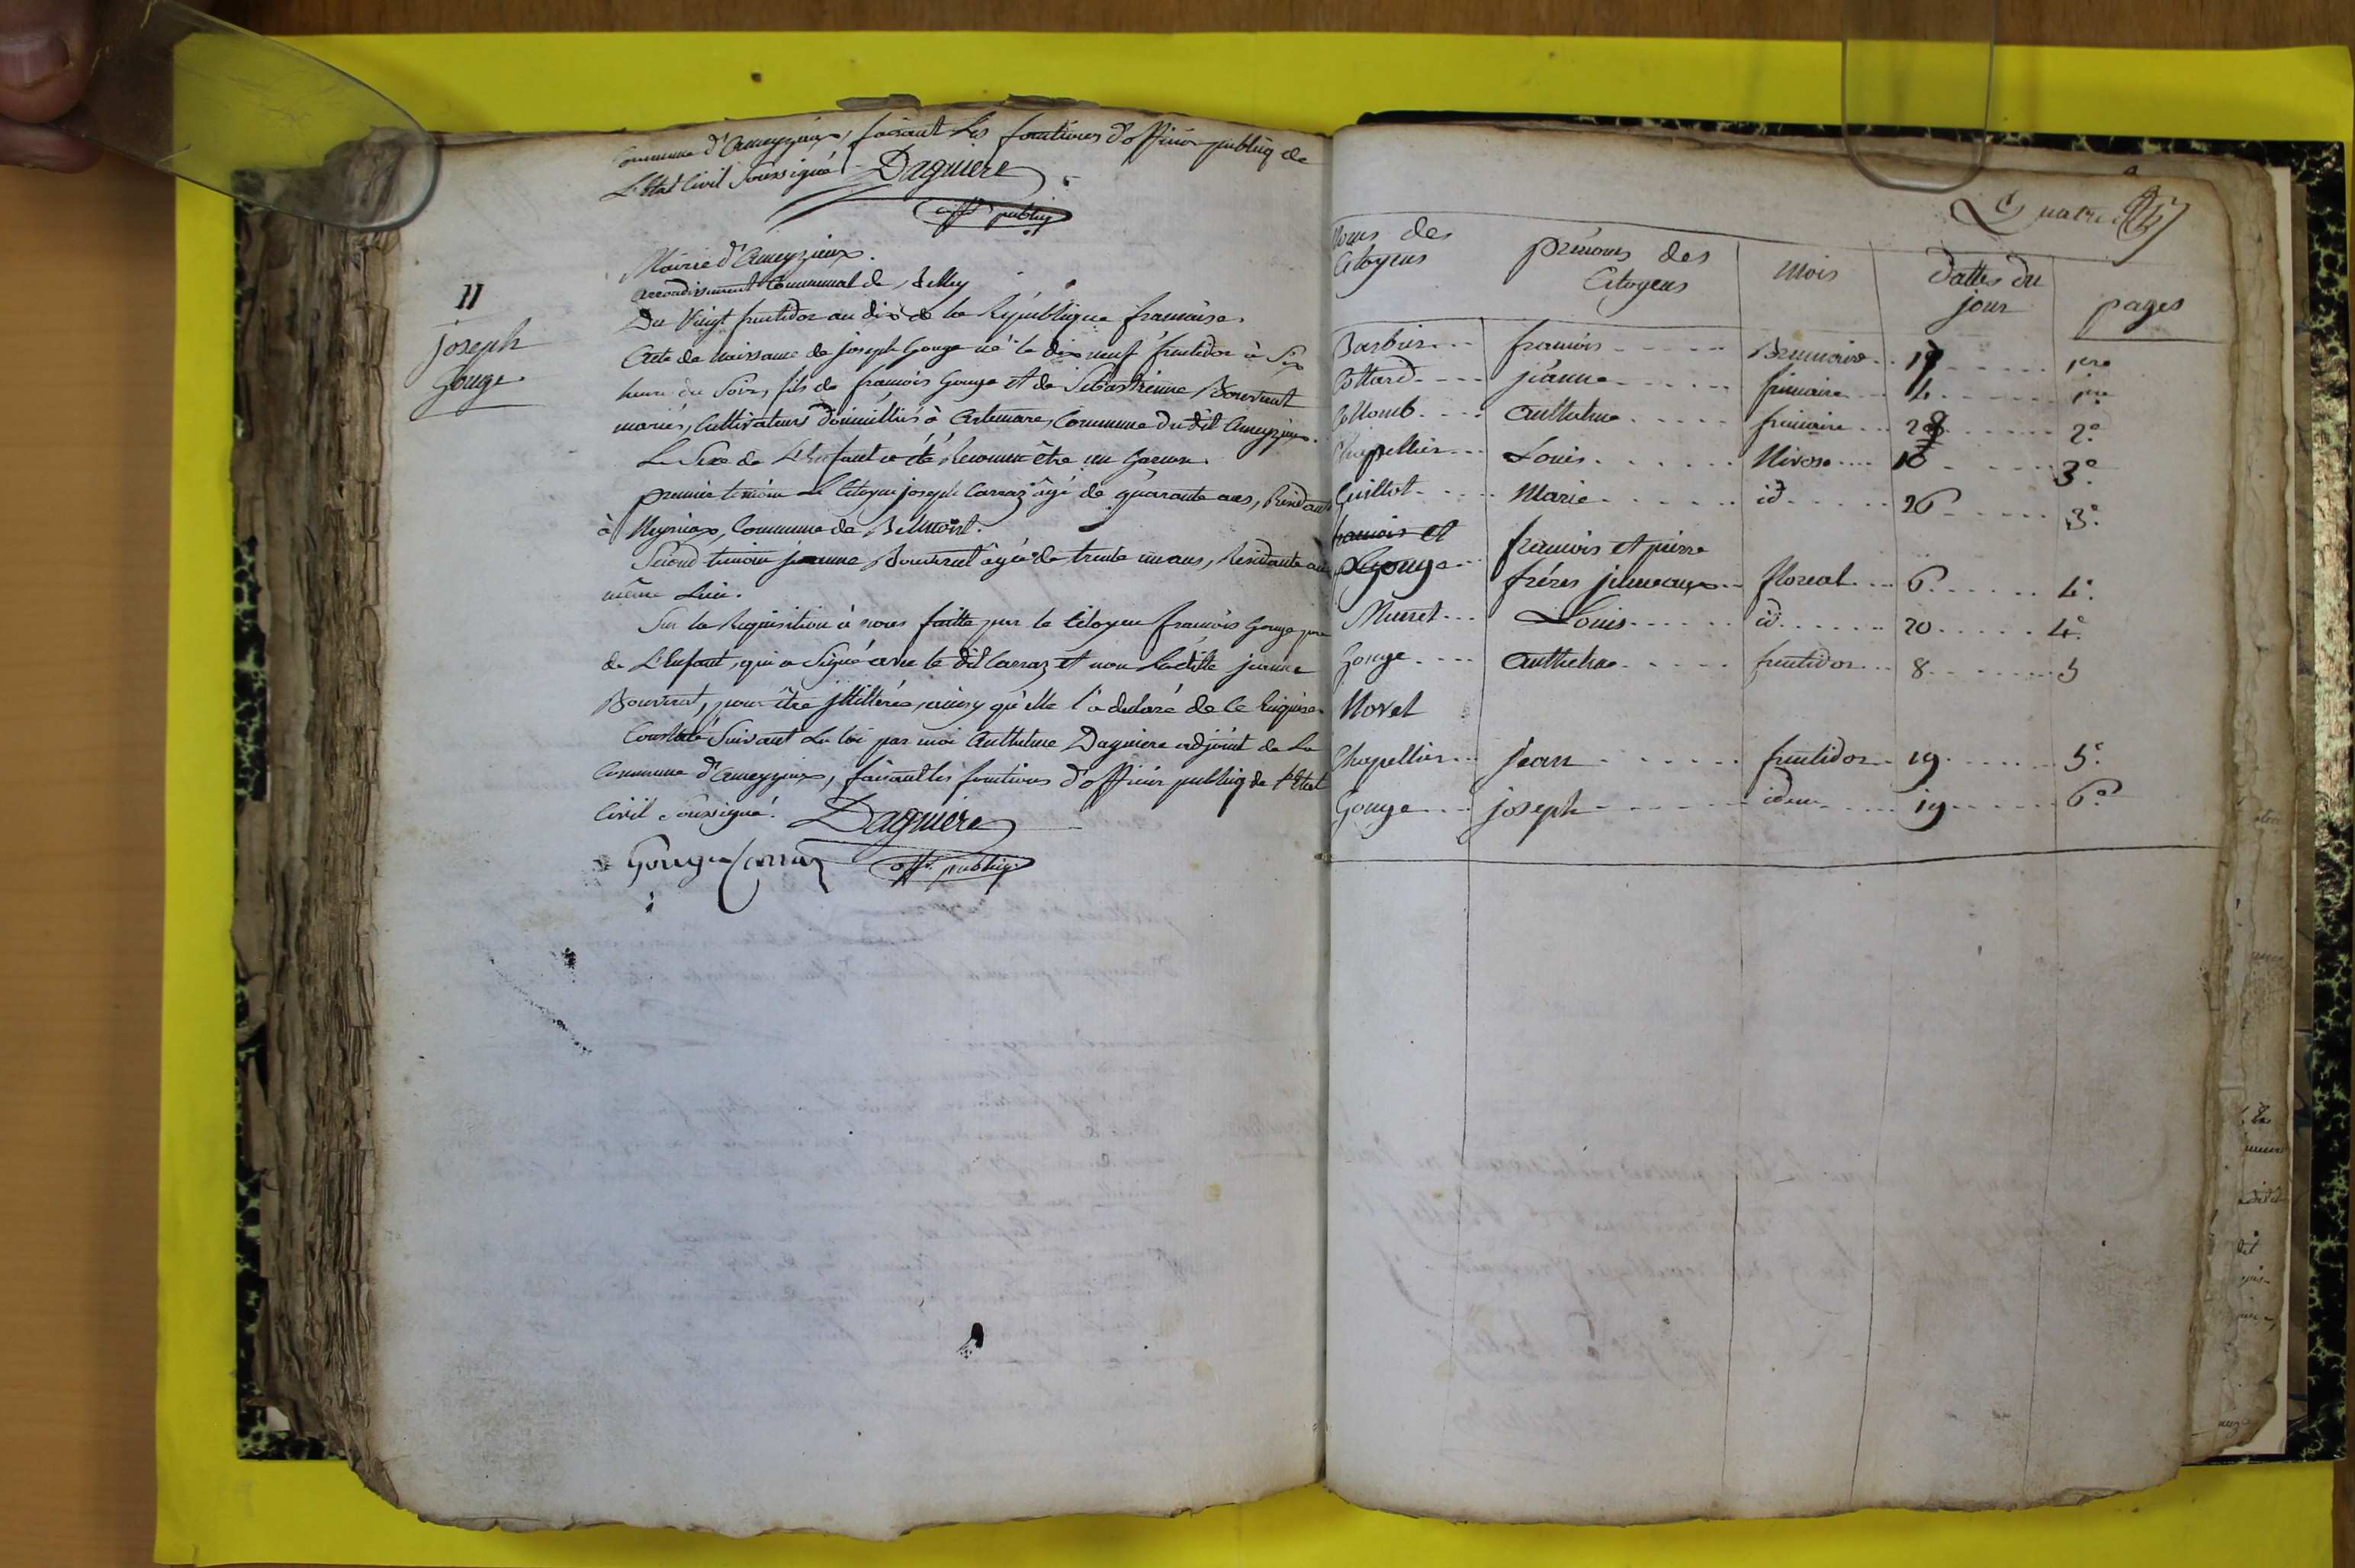 Commune d'Ameyzieux, faisant Les fonctions d'officier publiq de
L'Etat Civil soussigné Dagniere
off. publiq
Mairie d'Ameyzieux.
arrondissement Communal de Belley
Du Vingt fructidor an dix de la République francaise.
11
joseph
Gouge
Acte de Naissance de joseph Gouge né le dix neuf fructidor à Six
heure du Soir, fils de francois Gouge et de Sebastienne Bouvrent
mariés, Cultivateurs domicilliés à Artemare, Commune du dit Ameyzieux.
Le Sexe de L'Enfant a été Reconnu être un Garcon.
premier temoin Le Citoyen joseph Carraz âgé de quarante ans, Residant
à Neyrieux, Commune de Belmont.
Second temoin jeanne Bouvrent âgée de trente un ans, Residante au
même Lieu.
Sur la Requisition à nous faitte par le Citoyen francois Gouge pere
de L'Enfant, qui a Signé avec le dit Carraz et non Laditte jeanne
Bouvrent, pour être jllitérée, ainsy qu'elle l'a declaré de ce Enquise.
Constaté Suivant La loi par moi Anthelme Dagniere adjoint de La
Commune d'Ameyzieux, faisant les fonctions d'officier publiq de l'Etat
Civil soussigné. Dagniere
Gouge Carraz off. publiq
Noms des Citoyens prénoms des Citoyens Mois Dattes du jour pages
Barbier francois Brumaire pre
Collard jeanne frimaire 4 pre
Collomb Anthelme frimaire 2e
Chapellier Louis Nivose 10 3e
Guillot Marie id 26 3e
francois et
Gouge francois et pierre
fréres jumeaux floreal 6 4e
Muret Louis id 20 4e
Gouge Anthelme fructidor 8 5
Novel
Chapellier Jean fructidor 19 5e
Gouge joseph idem 19 6e